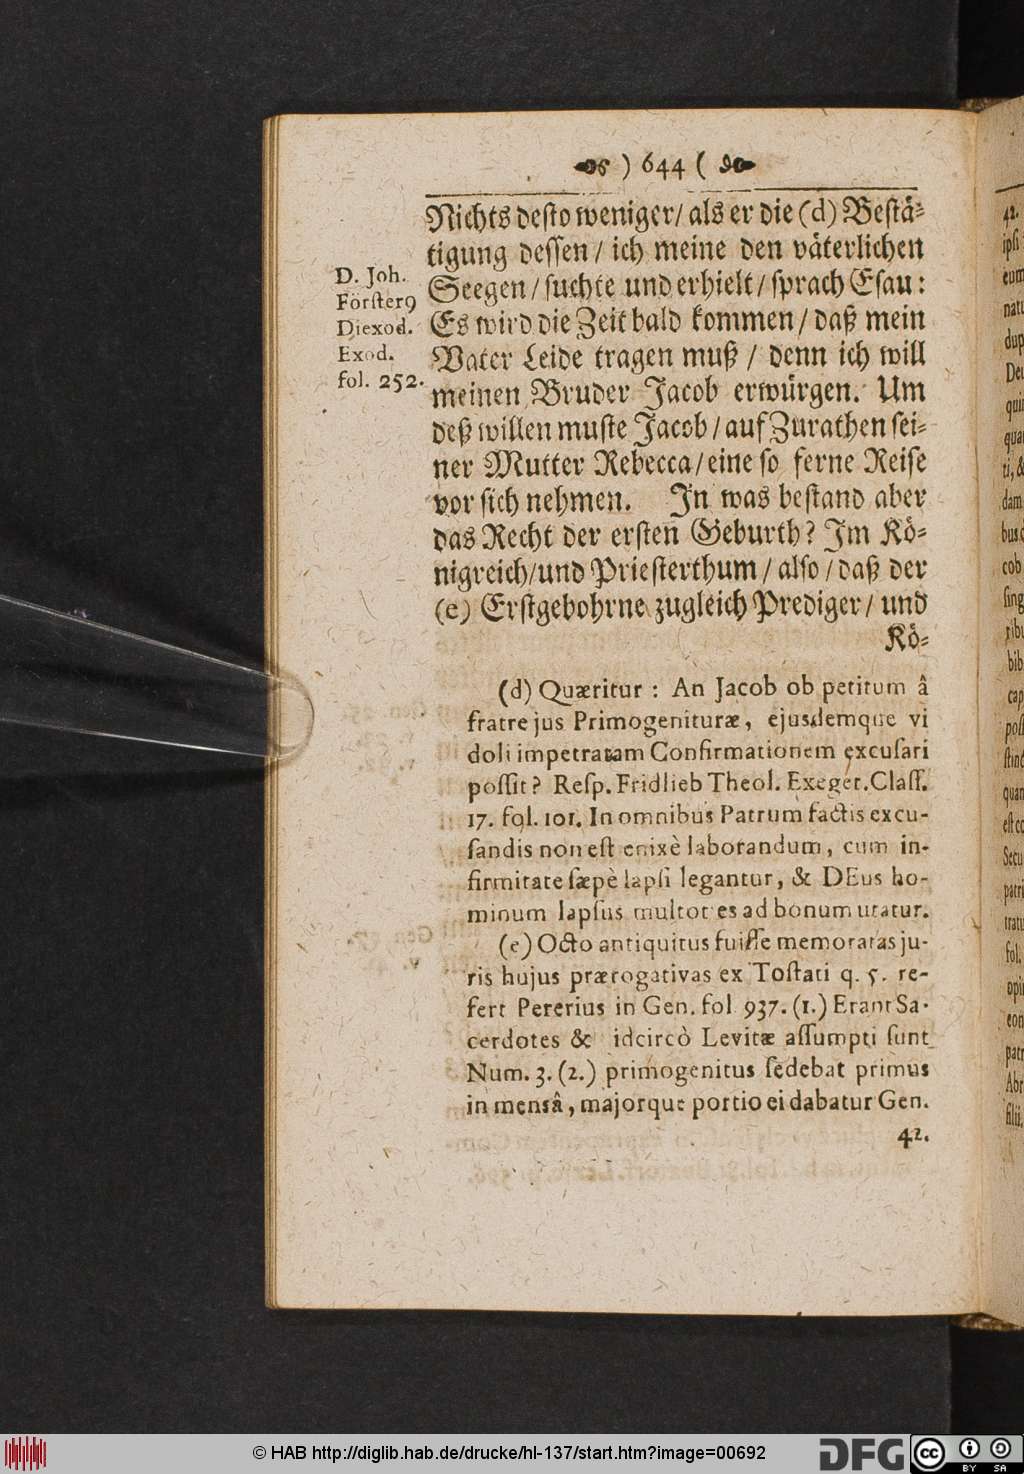 ) 644 (
Nichts desto weniger/ als er die (d) Bestä⸗
tigung dessen / ich meine den väterlichen
Seegen / suchte und erhielt / sprach Esau:
Es wird die Zeit bald kommen / daß mein
Vater Leide tragen muß / denn ich will
meinen Bruder Jacob erwürgen. Um
deß willen muste Jacob / auf Zurathen sei⸗
ner Mutter Rebecca / eine so ferne Reise
vor sich nehmen. In was bestand aber
das Recht der ersten Geburth? Im Kö⸗
nigreich/und Priesterthum / also / daß der
(e) Erstgebohrne zugleich Prediger / und
Kö⸗
D. Joh.
Förster9
Diexod.
Exod.
fol. 252.
(d) Quæritur : An Jacob ob petitum â
fratre jus Primogenituræ, ejusdemque vi
doli impetratam Confirmationem excusari
possit? Resp. Fridlieb Theol. Exeget. Class.
17. fol. 101. In omnibus Patrum factis excu-
sandis non est enixè laborandum, cum in-
firmitate sæpè lapsi legantur, & DEus ho-
minum lapsus multoties ad bonum utatur.
(e) Octo antiquitus fuisse memoratas ju-
ris hujus prærogativas ex Tostati q. 5. re-
fert Pererius in Gen. fol 937. (1.) Erant Sa-
cerdotes & idcircò Levitæ assumpti sunt
Num. 3. (2.) primogenitus sedebat primus
in mensâ, majorque portio ei dabatur Gen.
42.
42.
ipsi
eum
natu
dup
Deu
qui
qua
ti, &
dam
bus
cob
sing
ribu
bib
cap
poss
stinc
quan
est co
Secu
patri
tratu
fol.
opi
con
patr
Abr
filii,
© HAB http://diglib.hab.de/drucke/hl-137/start.htm?image=00692
DFG
cc
BY SA